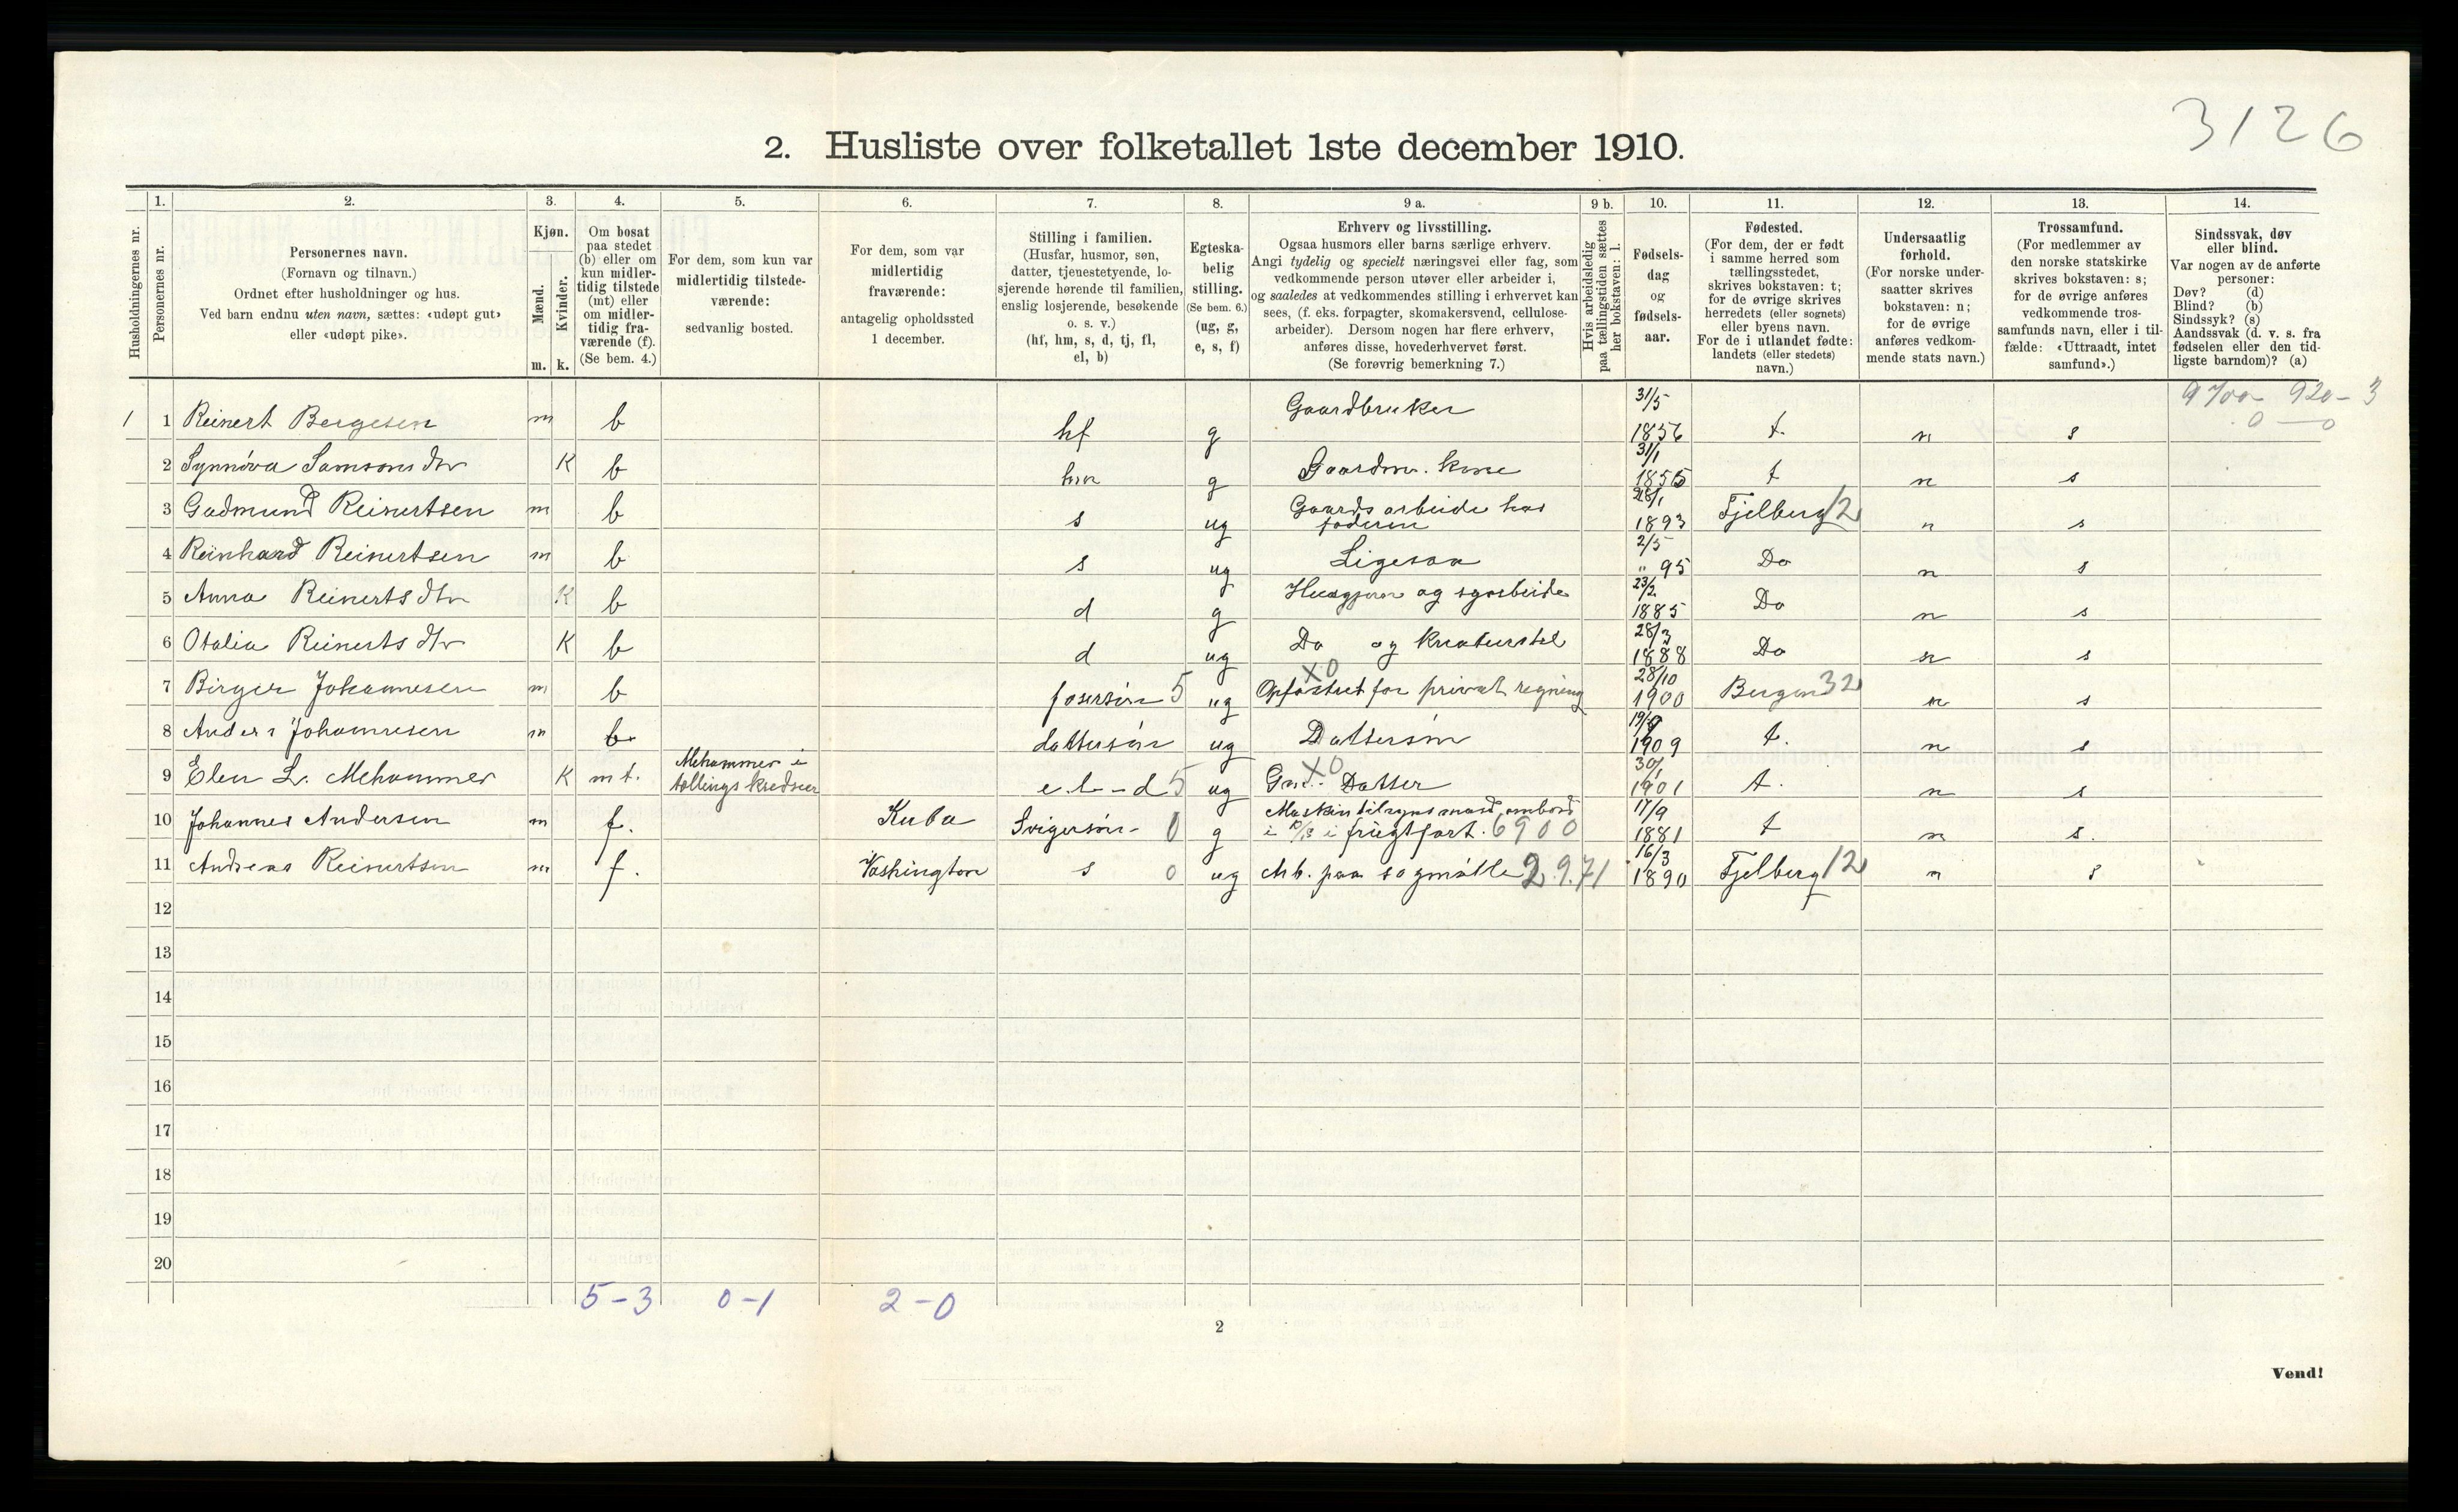 3126
2. Husliste over folketallet 1ste december 1910.
Husholdningernes nr.
1. Personernes nr.
2. Personernes navn.
(Fornavn og tilnavn.)
Ordnet efter husholdninger og hus.
Ved barn endnu uten navn, sættes: «udøpt gut»
eller «udøpt pike».
3. Kjøn.
Mænd. m.
Kvinder. k.
4. Om bosat
paa stedet
(b) eller om
kun midler-
tidig tilstede
(mt) eller
om midler-
tidig fra-
værende (f).
(Se bem. 4.)
5. For dem, som kun var
midlertidig tilstede-
værende:
sedvanlig bosted.
6. For dem, som var
midlertidig
fraværende:
antagelig opholdssted
1 december.
7. Stilling i familien.
(Husfar, husmor, søn,
datter, tjenestetyende, lo-
sjerende hørende til familien,
enslig losjerende, besøkende
o. s. v.)
(hf, hm, s, d, tj, fl,
el, b)
8. Egteska-
belig
stilling.
(Se bem. 6.)
(ug, g,
e, s, f)
9 a. Erhverv og livsstilling.
Ogsaa husmors eller barns særlige erhverv.
Angi tydelig og specielt næringsvei eller fag, som
vedkommende person utøver eller arbeider i,
og saaledes at vedkommendes stilling i erhvervet kan
sees, (f. eks. forpagter, skomakersvend, cellulose-
arbeider). Dersom nogen har flere erhverv,
anføres disse, hovederhvervet først.
(Se forøvrig bemerkning 7.)
9 b. Hvis arbeidsledig
paa tællingstiden sættes
her bokstaven: l.
10. Fødsels-
dag
og
fødsels-
aar.
11. Fødested.
(For dem, der er født
i samme herred som
tællingsstedet,
skrives bokstaven: t;
for de øvrige skrives
herredets (eller sognets)
eller byens navn.
For de i utlandet fødte:
landets (eller stedets)
navn.)
12. Undersaatlig
forhold.
(For norske under-
saatter skrives
bokstaven: n;
for de øvrige
anføres vedkom-
mende stats navn.)
13. Trossamfund.
(For medlemmer av
den norske statskirke
skrives bokstaven: s;
for de øvrige anføres
vedkommende tros-
samfunds navn, eller i til-
fælde: «Uttraadt, intet
samfund».)
14. Sindssvak, døv
eller blind.
Var nogen av de anførte
personer:
Døv? (d)
Blind? (b)
Sindssyk? (s)
Aandssvak (d. v. s. fra
fødselen eller den tid-
ligste barndom)? (a)
9700 920-3
0 — 0
1 1 Reinert Bergesen m b hf g Gaardbruker 31/5 1856 t. n s
2 Synnöva Samsons dtr K b hm g Gaardm. kone 31/1 1855 t n s
3 Gudmund Reinertsen m b s ug Gaards arbeide hos faderen 1893 Fjelberg 12 n s
4 Reinhard Reinertsen m b s ug Ligesaa 2/5 " 95 Do n s
5 Anna Reinerts dtr K b d g Husgjern og syarbeide 23/2 1885 Do n s
6 Otalia Reinerts dtr K b d ug Do og kreaturstel 28/3 1888 Do n s
7 Birger Johannesen m b fosersön 5 ug Opfostret for privat regning X0 28/10 1900 Bergen 32 n s
8 Anders Johannesen m b dattersön ug Dattersön 1909 t. n s
9 Elen L. Mehammer K mt. Mehammer i tællings kredsen el-d 5 ug Datter X0 30/1 1901 t. n s
10 Johannes Andersen m f. Kuba Svigersön - 0 g Maskintilsynsmand ombord i frugtfart. 6900 17/9 1881 t n s.
11 Andreas Reinertsen m f. Vashington s 0 ug Arb. paa sagmölle 2.9.71 16/3 1890 Fjelberg 12 n s
12
13
14
15
16
17
18
19
20
5-3 0-1 2-0
2
Vend!